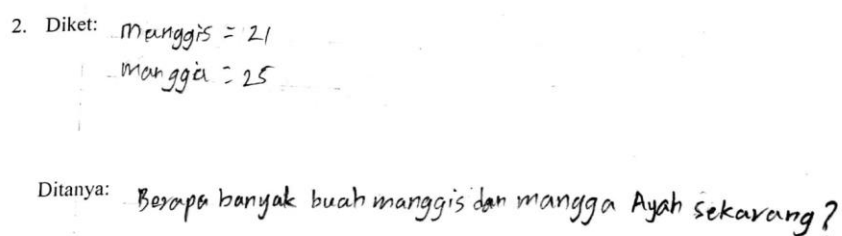 2. Diket: manggis = 21
mangga = 25
Ditanya: Berapa banyak buah manggis dan mangga Ayah sekarang?